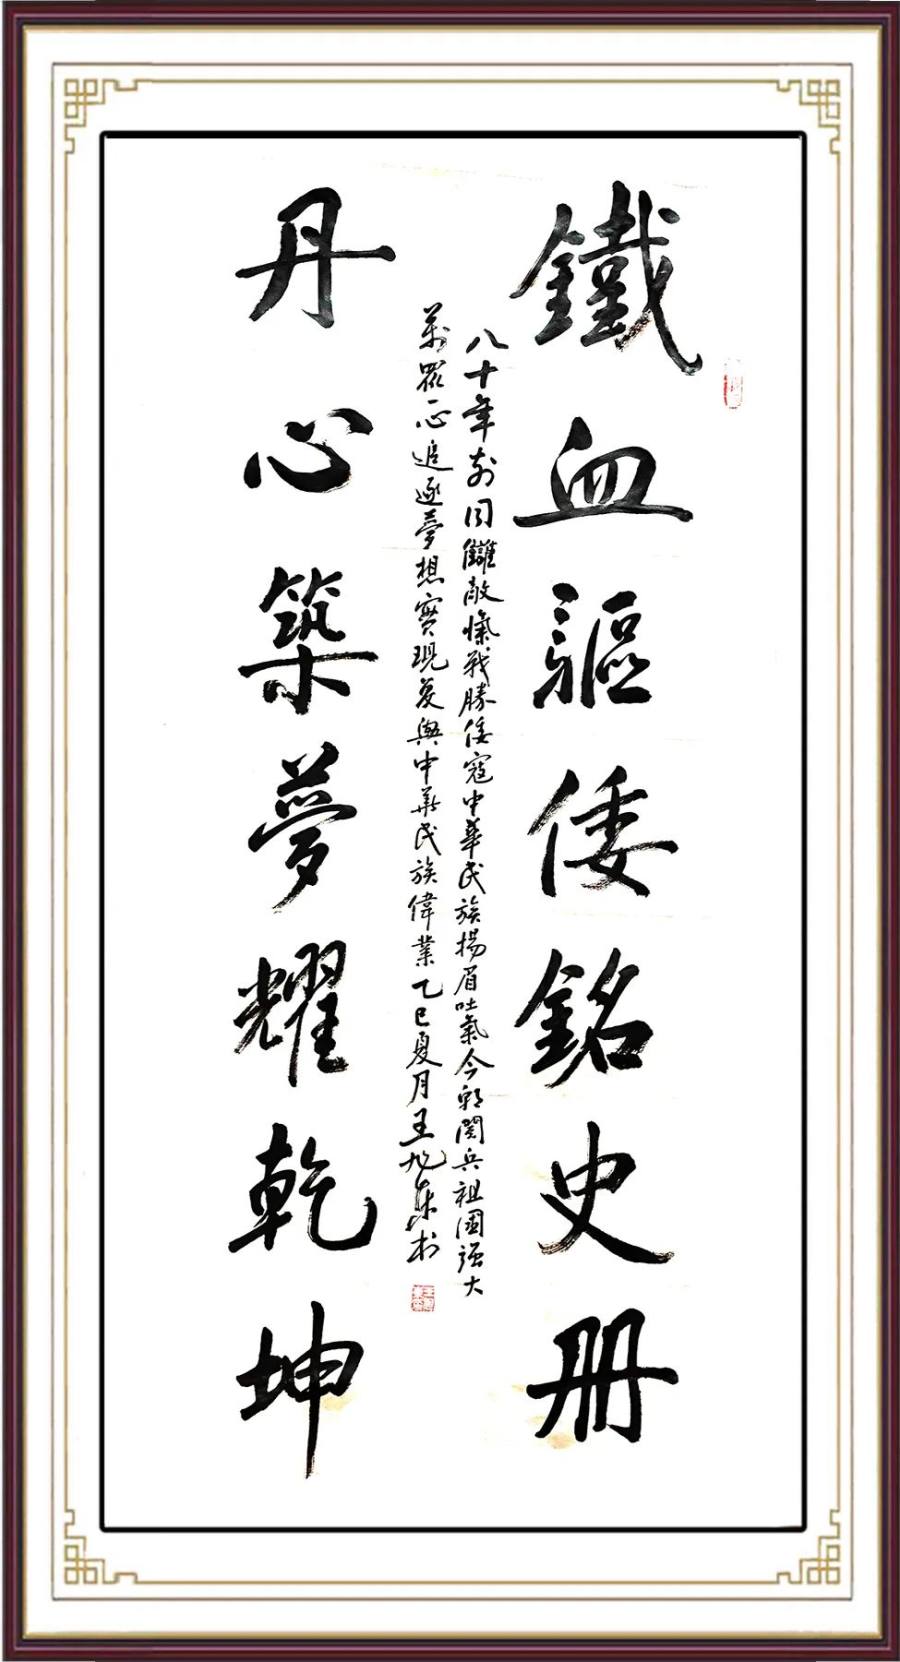 鐵血驅倭銘史册
八十年前同讎敵愾戰勝倭寇中華民族揚眉吐氣今朝閱兵祖國强大
萬眾一心追逐夢想實現复興中華民族偉業乙巳夏月王旭東书
丹心築夢耀乾坤